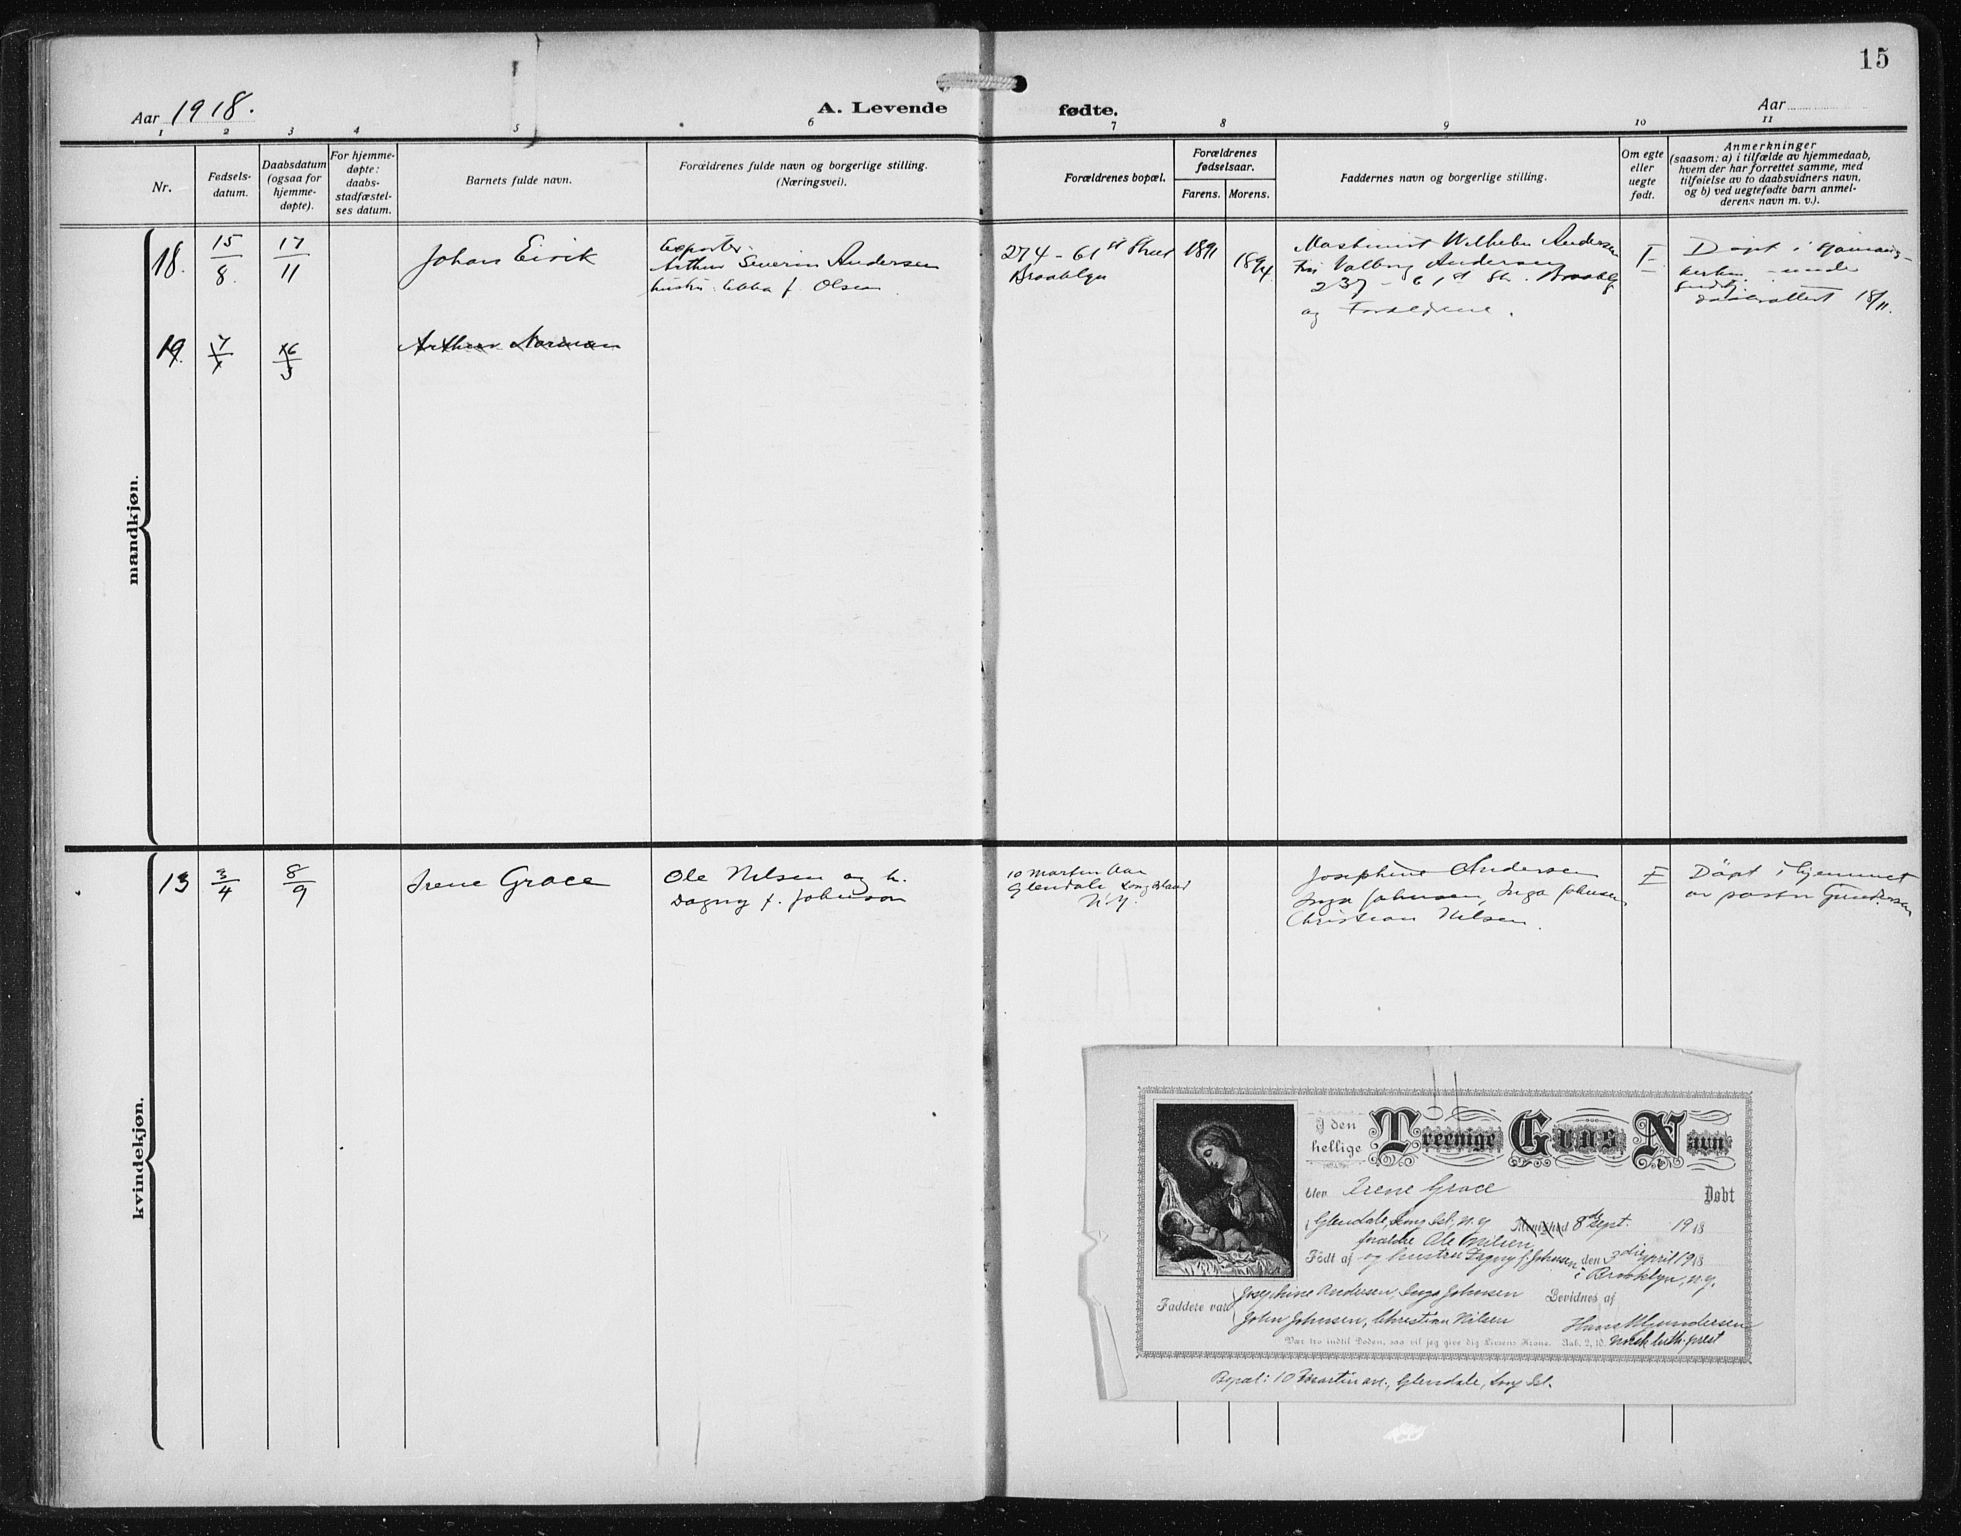 15
Aar 1918.
A. Levende
fødte.
Aar
1 2 3 4 5 6 7 8 9 10 11
Nr.
Fødsels-
datum.
Daabsdatum
(ogsaa for
hjemme-
døpte).
For hjemme-
døpte:
daabs-
stadfæstel-
ses datum.
Barnets fulde navn.
Forældrenes fulde navn og borgerlige stilling.
(Næringsvei).
Forældrenes bopæl.
Forældrenes
fødselsaar.
Farens. Morens.
Faddernes navn og borgerlige stilling.
Om egte
eller
uegte
født.
Anmerkninger
(saasom: a) i tilfælde av hjemmedaab,
hvem der har forrettet samme, med
tilføielse av to daabsvidners navn,
og b) ved uegtefødte barn anmel-
derens navn m. v.).
mandkjøn.
18. 15/8. 17/11
Johan Eivik
Arthur Severin Andersen
hustru Ebba f. Olsen
274 - 61 st Street
Brooklyn
1891
1894
Maskinist Wilhelm Andersen
Fru Valborg Andersen
237 - 61 st Str. Brooklyn
og Forældrene.
E
Døpt i
kirken - under
18/11.
19. 7/
Arthur Norman
kvindekjøn.
13 3/4 8/9
Irene Grace
Ole Nilsen og h.
Dagny f. Johnson
10 Martin Av
Glendale, Long Island
N.Y.
Josephine Andersen
Inga Johnsen, Inga Johnsen
Christian Nilsen.
E
Døpt i hjemmet
av pastor Gundersen
I den
hellige Treenige Guds Navn
blev Irene Grace Døbt
i Glendale, Long Isl., N.Y Menighed 8de Sept. 1918
forældre Ole Nilsen
Født af og hustru Dagny f. Johnsen, den 3die april 1918
i Brooklyn, N.Y.
Josephine Andersen, Inga Johnsen Bevidnes af
Faddere var
John Johnsen, Christian Nilsen Hans M Gundersen
Vær tro indtil Døden, saa vil jeg give dig Livsens Krone. Aab. 2, 10. norsk luth. prest
Bopæl: 10 Martin ave., Glendale, Long Isl.